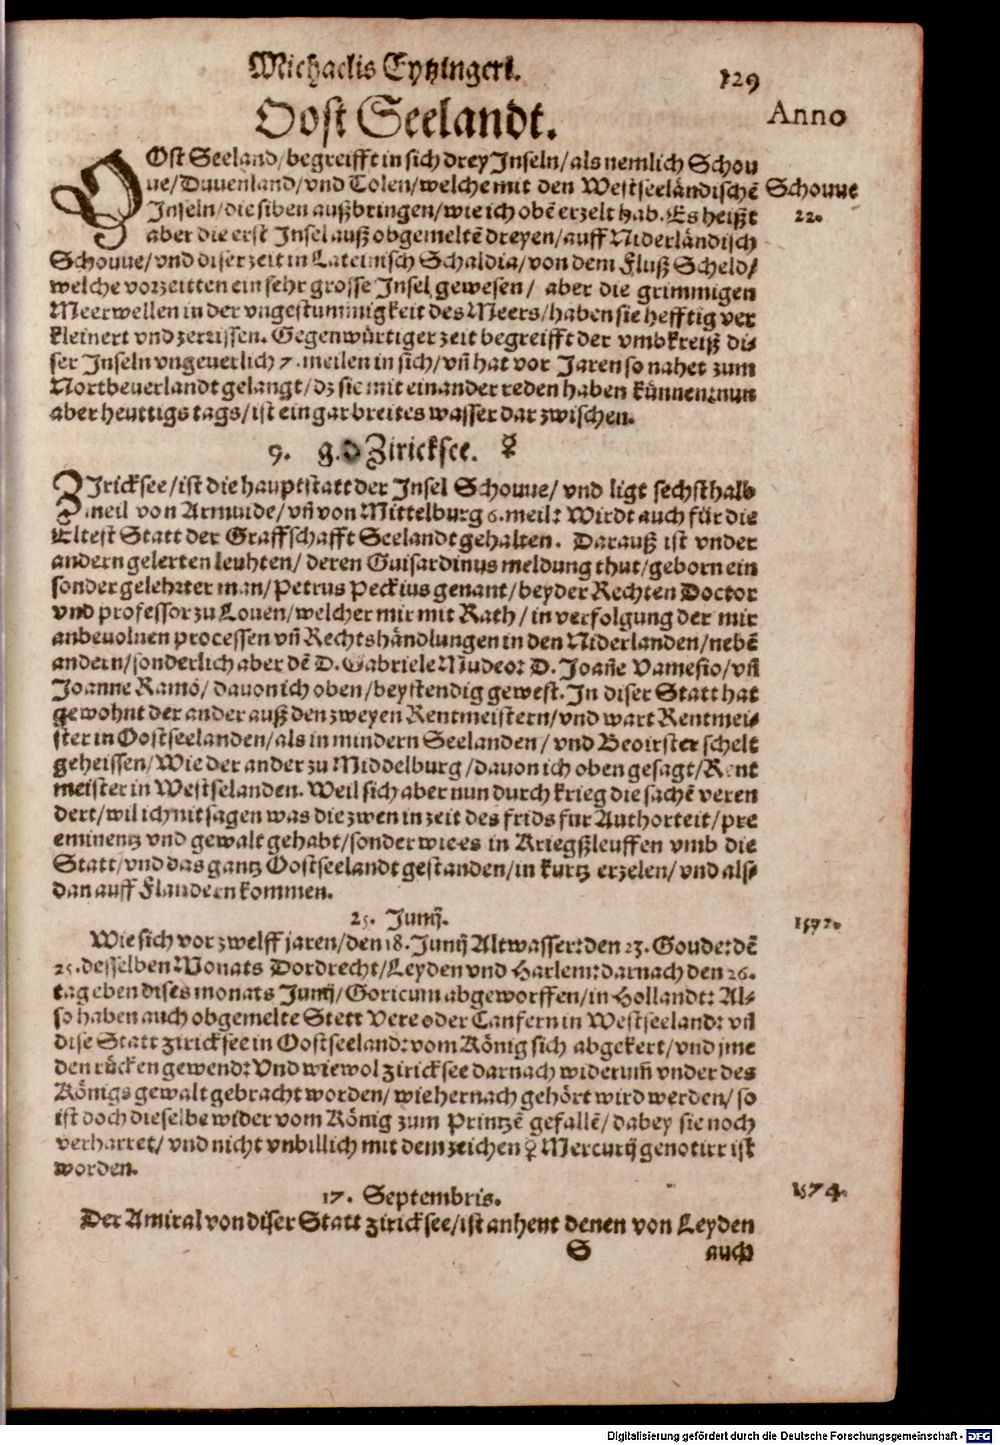 Michaelis Eytzingeri.
129
Oost Seelandt.
Anno
OOst Seeland/begreifft in sich drey Inseln/als nemlich Schou
ue/Duuenland/vnd Tolen/welche mit den Westseeländischē
Schouue
Inseln/die siben außbringen/wie ich obē erzelt hab. Es heißt
22.
aber die erst Insel auß obgemeltē dreyen/auff Niderländisch
Schouue/vnd diser zeit in Lateinisch Schaldia/von dem Fluß Scheld/
welche vorzeitten ein sehr grosse Insel gewesen/ aber die grimmigen
Meerwellen in der vngestummigkeit des Meers/haben sie hefftig ver
kleinert vnd zerrissen. Gegenwürtiger zeit begreifft der vmbkreiß di-
ser Inseln vngeuerlich 7. meilen in sich/vñ hat vor Jaren so nahet zum
Nortbeuerlandt gelangt/dz sie mit einander reden haben künnen:nun
aber heuttigs tags/ist ein gar breites wasser darzwischen.
9. g.d Ziricksee. ☿
ZIricksee/ist die hauptstatt der Insel Schouue/ vnd ligt sechsthalb
meil von Armuide/vñ von Mittelburg 6.meil: Wirdt auch für die
Eltest Statt der Graffschafft Seelandt gehalten. Darauß ist vnder
andern gelerten leuhten/ deren Guisardinus meldung thut/geborn ein
sonder gelehrter man/Petrus Peckius genant/beyder Rechten Doctor
vnd professor zu Louen/welcher mir mit Rath/in verfolgung der mir
anbeuolnen processen vñ Rechtshändlungen in den Niderlanden/nebē
andern/sonderlich aber dē D. Gabriele Mudeo: D. Joañe Vamesio/vñ
Joanne Ramo/ dauon ich oben/beystendig gewest. In diser Statt hat
gewohnt der ander auß den zweyen Rentmeistern/vnd wart Rentmei-
ster in Oostseelanden/als in mindern Seelanden/ vnd Beoirster schelt
geheissen/Wie der ander zu Middelburg/dauon ich oben gesagt/Rent
meister in Westselanden. Weil sich aber nun durch krieg die sachē veren
dert/wil ich nit sagen was die zwen in zeit des frids fur Authorteit/pre
eminentz vnd gewalt gehabt/sonder wie es in Kriegßleuffen vmb die
Statt/vnd das gantz Oostseelandt gestanden/in kurtz erzelen/ vnd als-
dan auff Flandern kommen.
25. Junij.
1572.
Wie sich vor zwelff jaren/den 18. Junij Altwasser:den 23. Goude:dē
25.desselben Monats Dordrecht/Leyden vnd Harlem:darnach den 26.
tag eben dises monats Junij/Goricum abgeworffen/in Hollandt: Al-
so haben auch obgemelte Stett Vere oder Canfern in Westseeland: vñ
dise Statt ziricksee in Oostseeland:vom König sich abgekert/vnd jme
den rücken gewend: Vnd wiewol ziricksee darnach widerum̄ vnder des
Königs gewalt gebracht worden/ wie hernach gehört wird werden/ so
ist doch dieselbe wider vom König zum Printzē gefallē/ dabey sie noch
verharret/ vnd nicht vnbillich mit dem zeichen ☿ Mercurij genotirt ist
worden.
17. Septembris.
1574.
Der Amiral von diser Statt ziricksee/ist anheut denen von Leyden
S
auch
Digitalisierung gefördert durch die Deutsche Forschungsgemeinschaft -
DFG